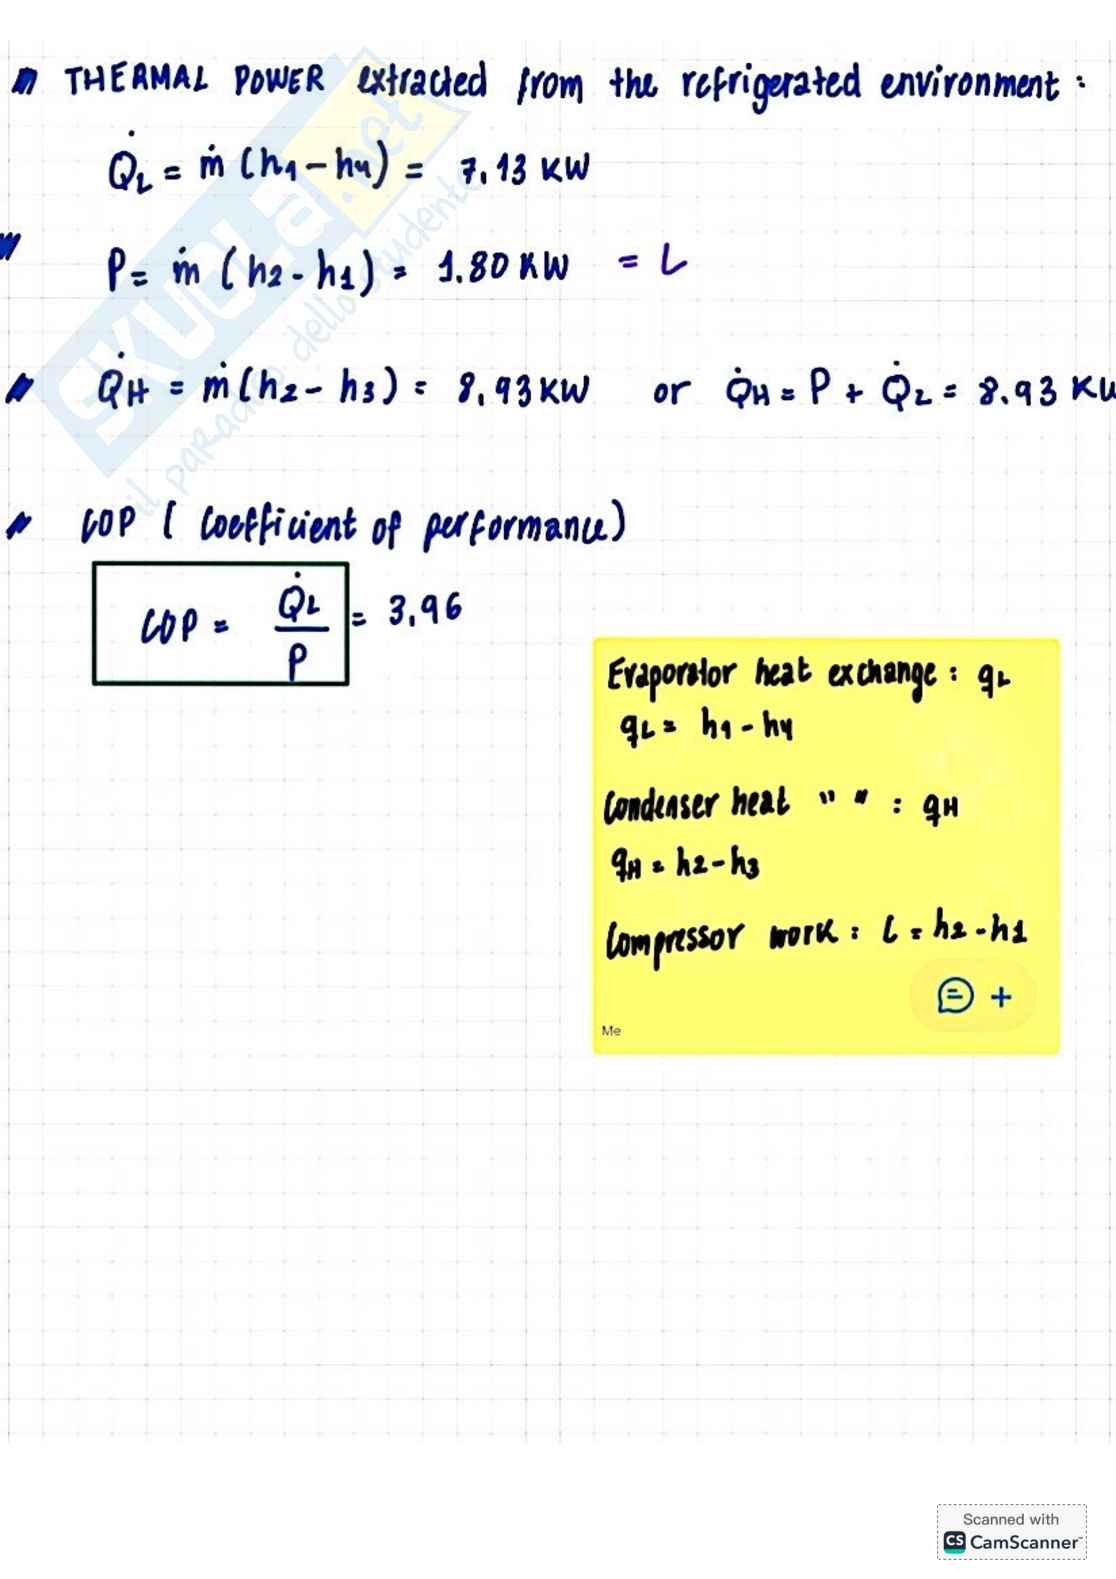 THERMAL POWER extracted from the refrigerated environment :
Q̇L = ṁ (h1 - h4) = 7.13 KW
P = ṁ (h2 - h1) = 1.80 KW = L
Q̇H = ṁ (h2 - h3) = 8.93 KW or Q̇H = P + Q̇L = 8.93 KW
COP ( Coefficient of performance)
COP = Q̇L / P = 3.96
Evaporator heat exchange : qL
qL = h1 - h4
Condenser heat " " : qH
qH = h2 - h3
Compressor work : L = h2 - h1
Me
SKUOLA.net
il paradiso dello studente
Scanned with
CS CamScanner™